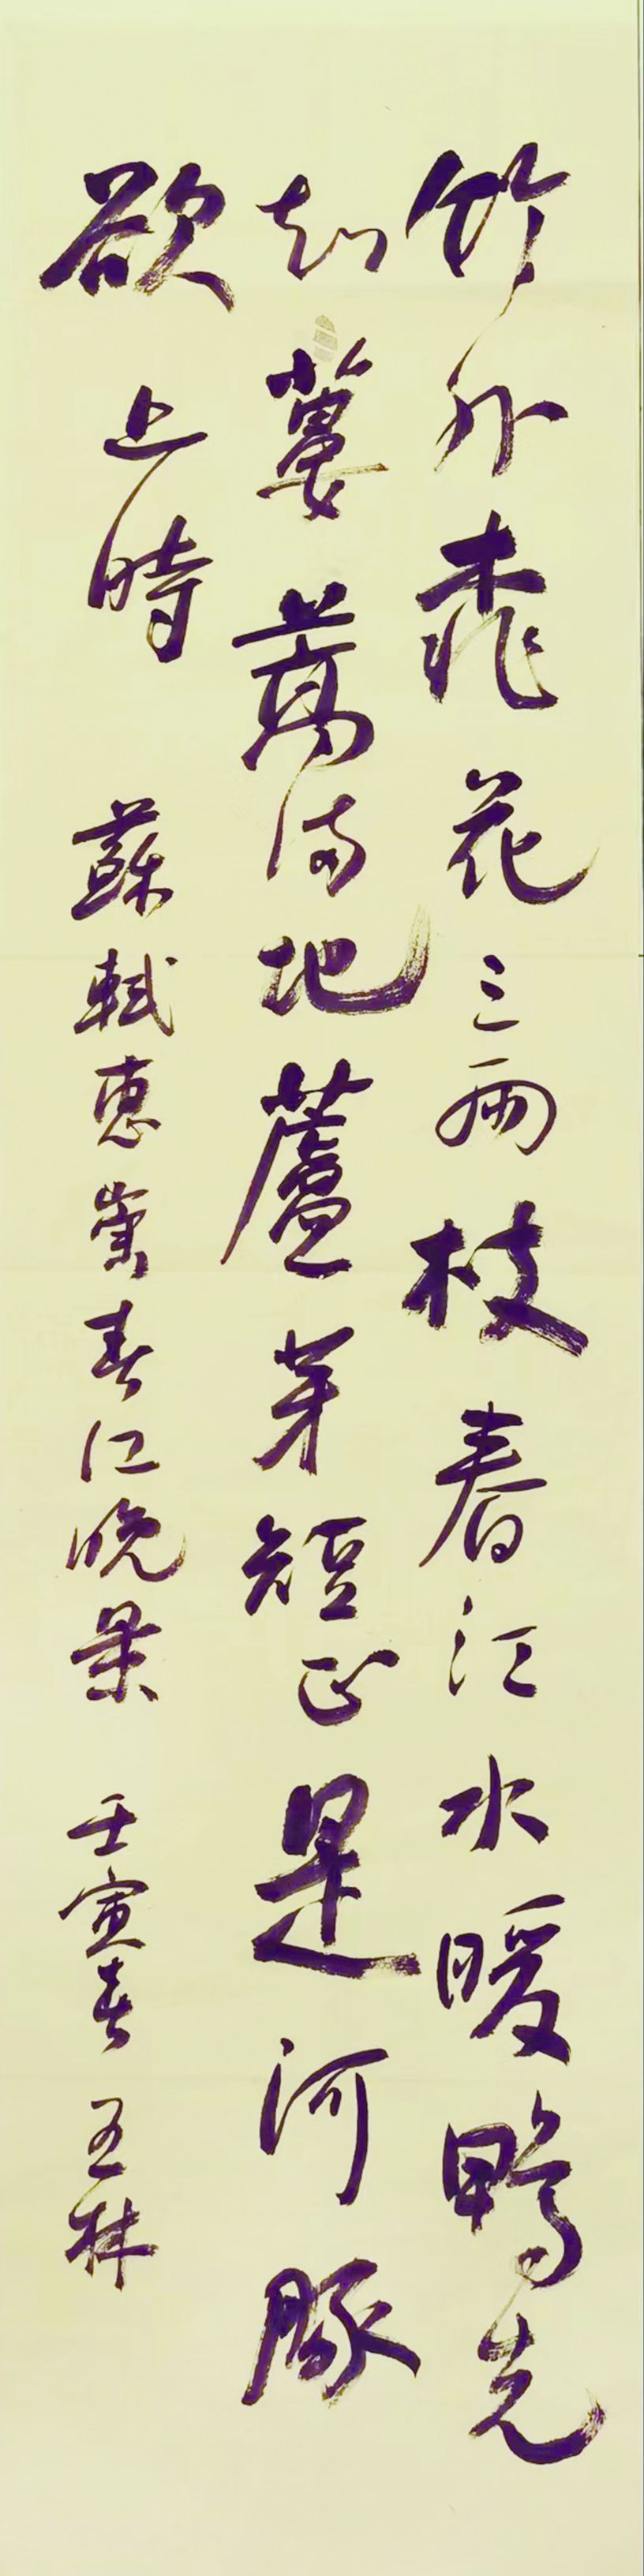 竹外桃花三兩枝春江水暖鴨先
知蔞蒿滿地蘆芽短正是河豚
欲上時 蘇軾惠崇春江晚景 壬寅春 玉林